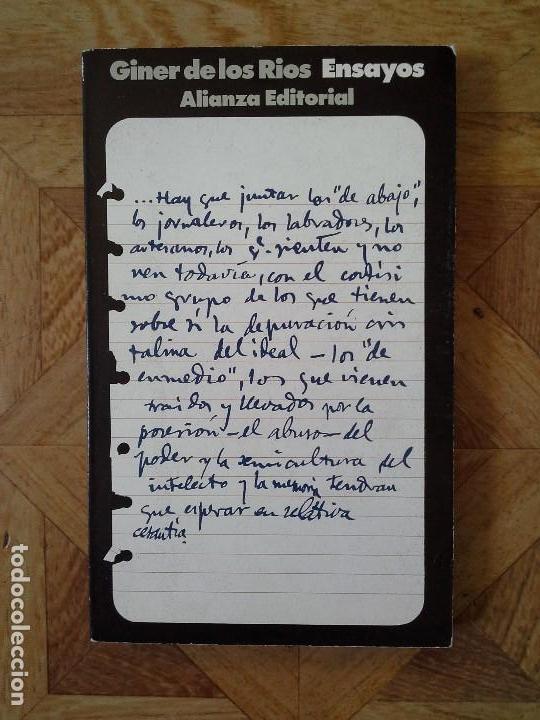 Giner de los Rios Ensayos
Alianza Editorial
...Hay que juntar los "de abajo",
los jornaleros, los labradores, los
artesanos, los q. sienten y no
ven todavía, con el cortísi
mo grupo de los que tienen
sobre sí la depuración cris
talina del ideal - los "de
enmedio", los que vienen
traídos y llevados por la
posesión - el abuso - del
poder y la semicultura del
intelecto y la memoria tendran
que esperar en relativa
cesantía.
todocoleccion